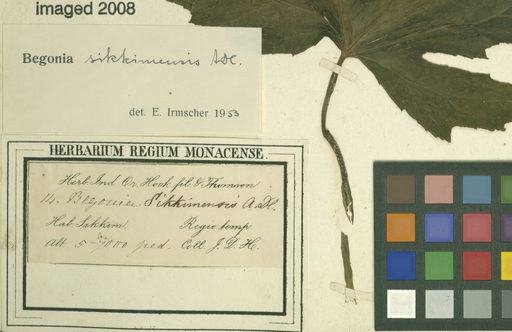 imaged 2008
Begonia sikkimensis A.DC.
det. E. Irmscher 1953
HERBARIUM REGIUM MONACENSE.
Herb. Ind. Or. Hook. fil. & Thomson
14. Begonia Sikkimensis A. DC.
Hab. Sikkim. Regio temp
Alt. 5-7000 ped. Coll. J. D. H.